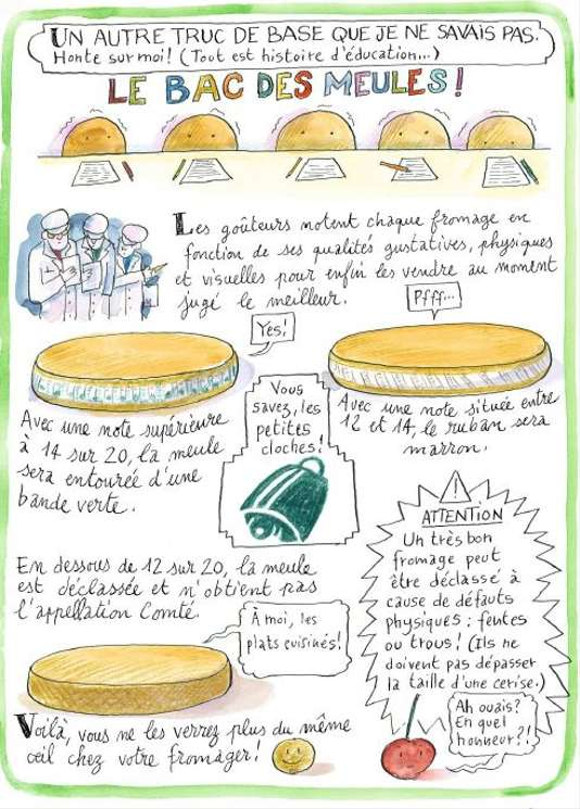 UN AUTRE TRUC DE BASE QUE JE NE SAVAIS PAS.
Honte sur moi! (Tout est histoire d'éducation...)
LE BAC DES MEULES!
Les goûteurs notent chaque fromage en
fonction de ses qualités gustatives, physiques
et visuelles pour enfin les vendre au moment
jugé le meilleur.
Yes!
Pfff...
Avec une note supérieure
à 14 sur 20, la meule
sera entourée d'une
bande verte.
Vous
savez, les
petites
cloches!
Avec une note située entre
12 et 14, le ruban sera
marron.
En dessous de 12 sur 20, la meule
est déclassée et n'obtient pas
l'appellation Comté.
À moi, les
plats cuisinés!
!
ATTENTION
Un très bon
fromage peut
être déclassé à
cause de défauts
physiques : fentes
ou trous! (Ils ne
doivent pas dépasser
la taille d'une cerise.)
Voilà, vous ne les verrez plus du même
œil chez votre fromager!
Ah ouais?
En quel
honneur?!